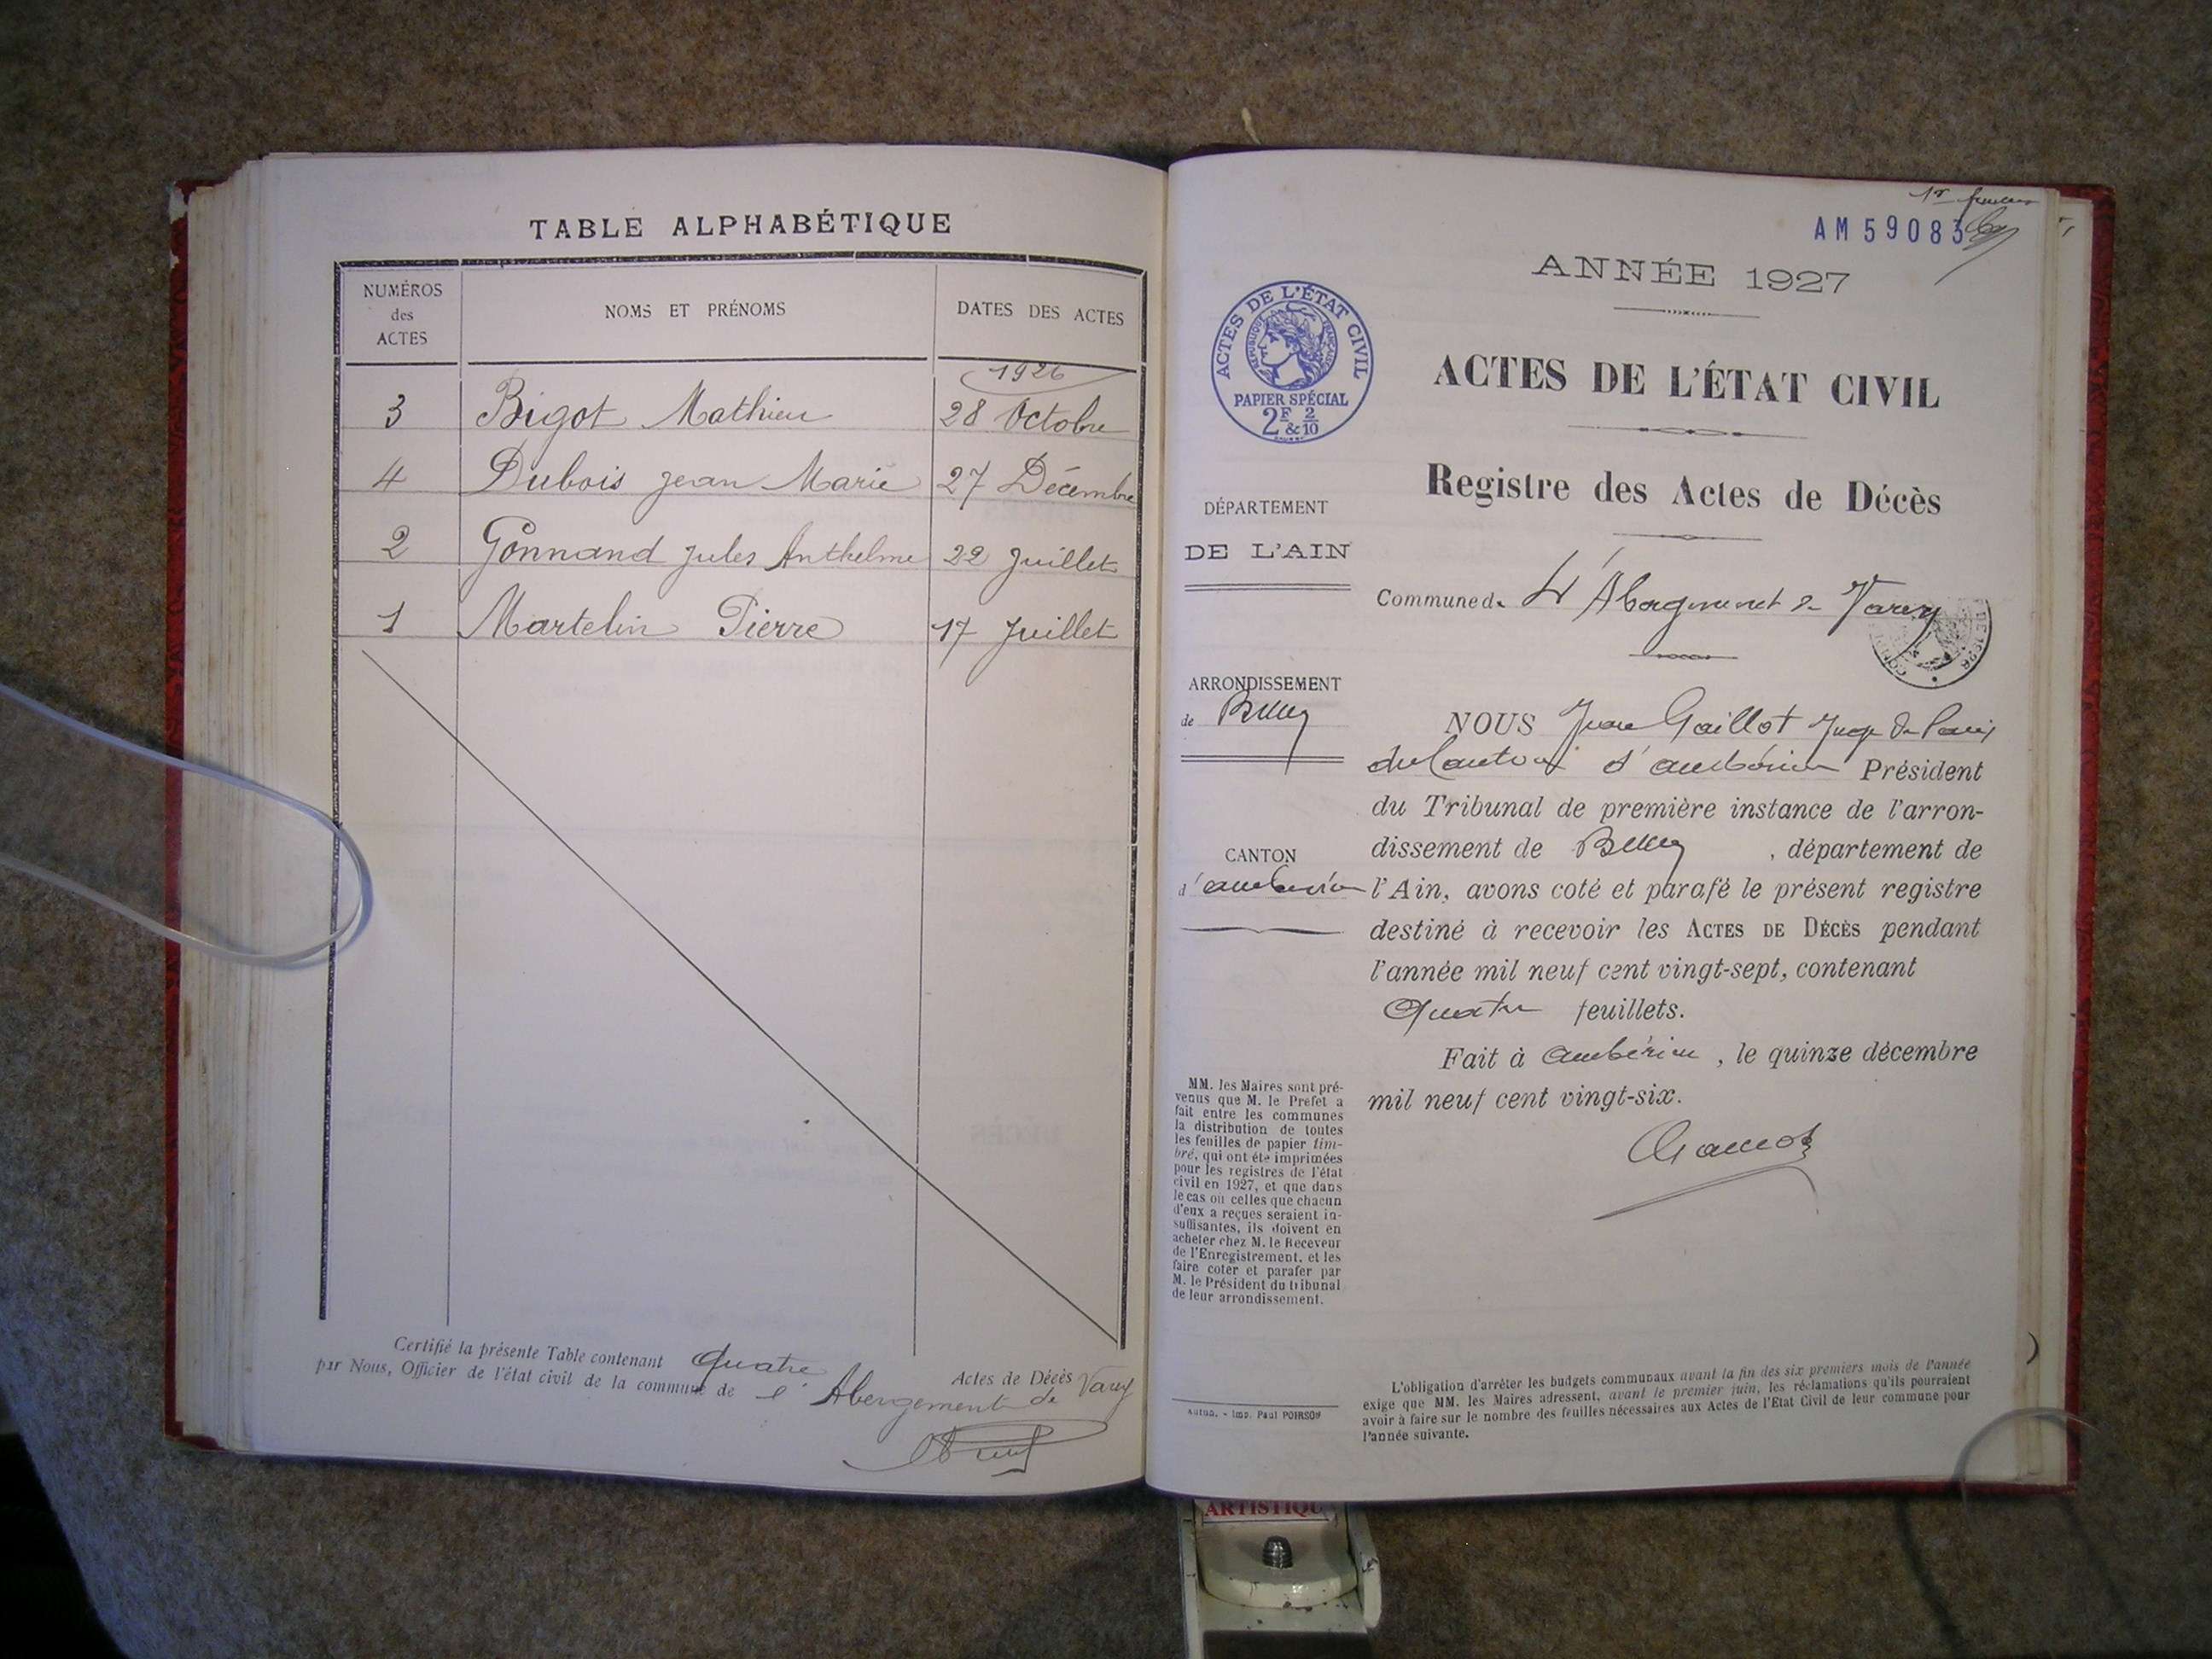 TABLE ALPHABÉTIQUE
NUMÉROS des ACTES
NOMS ET PRÉNOMS
DATES DES ACTES
1926
3 Bigot Mathieu 28 Octobre
4 Dubois Jean Marie 27 Décembre
2 Gonnand Jules Anthelme 22 Juillet
1 Martelin Pierre 17 Juillet
Certifié la présente Table contenant quatre Actes de Décès
par Nous, Officier de l'état civil de la commune de l'Abergement de Varey
1er feuillet
AM 59083
ANNÉE 1927
ACTES DE L'ÉTAT CIVIL
RÉPUBLIQUE FRANÇAISE
PAPIER SPÉCIAL
2F & 2/10
ACTES DE L'ÉTAT CIVIL
Registre des Actes de Décès
DÉPARTEMENT
DE L'AIN
Commune de L'Abergement de Varey
ARRONDISSEMENT
de Belley
CANTON
d'ambérieu
NOUS Jean Gaillot Juge de Paix
du Canton d'ambérieu Président
du Tribunal de première instance de l'arron-
dissement de Belley, département de
l'Ain, avons coté et parafé le présent registre
destiné à recevoir les ACTES DE DÉCÈS pendant
l'année mil neuf cent vingt-sept, contenant
Quatre feuillets.
Fait à ambérieu, le quinze décembre
mil neuf cent vingt-six.
MM. les Maires sont pré-
venus que M. le Préfet a
fait entre les communes
la distribution de toutes
les feuilles de papier tim-
bré, qui ont été imprimées
pour les registres de l'état
civil en 1927, et que dans
le cas où celles que chacun
d'eux a reçues seraient in-
suffisantes, ils doivent en
acheter chez M. le Receveur
de l'Enregistrement, et les
faire coter et parafer par
M. le Président du tribunal
de leur arrondissement.
Autun. - Imp. Paul POIRSON
L'obligation d'arrêter les budgets communaux avant la fin des six premiers mois de l'année
exige que MM. les Maires adressent, avant le premier juin, les réclamations qu'ils pourraient
avoir à faire sur le nombre des feuilles nécessaires aux Actes de l'Etat Civil de leur commune pour
l'année suivante.
ARTISTIQU